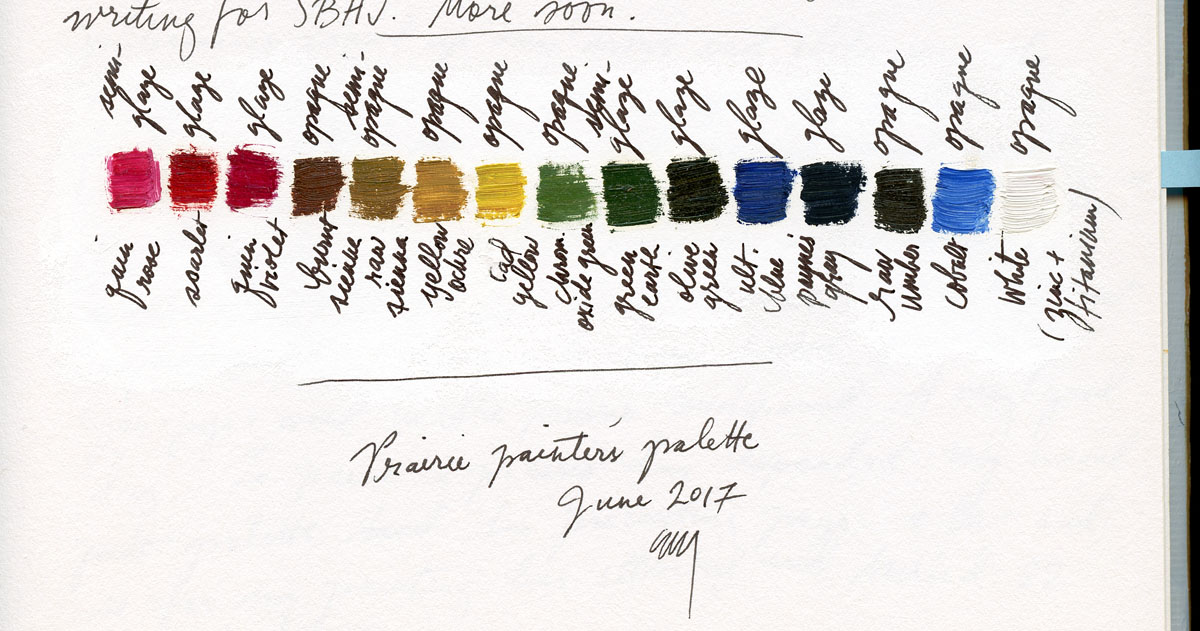 writing for SBHJ. More soon.
semi-
glaze
glaze
glaze
opaque
semi-
opaque
opaque
opaque
opaque
semi-
glaze
glaze
glaze
glaze
opaque
opaque
opaque
quin
rose
scarlet
quin
violet
burnt
sienna
raw
sienna
yellow
ochre
cad
yellow
chrom.
oxide green
green
earth
olive
green
ult.
blue
paynes
gray
raw
umber
cobalt
white
(zinc +
titanium)
Prairie painter's palette
June 2017